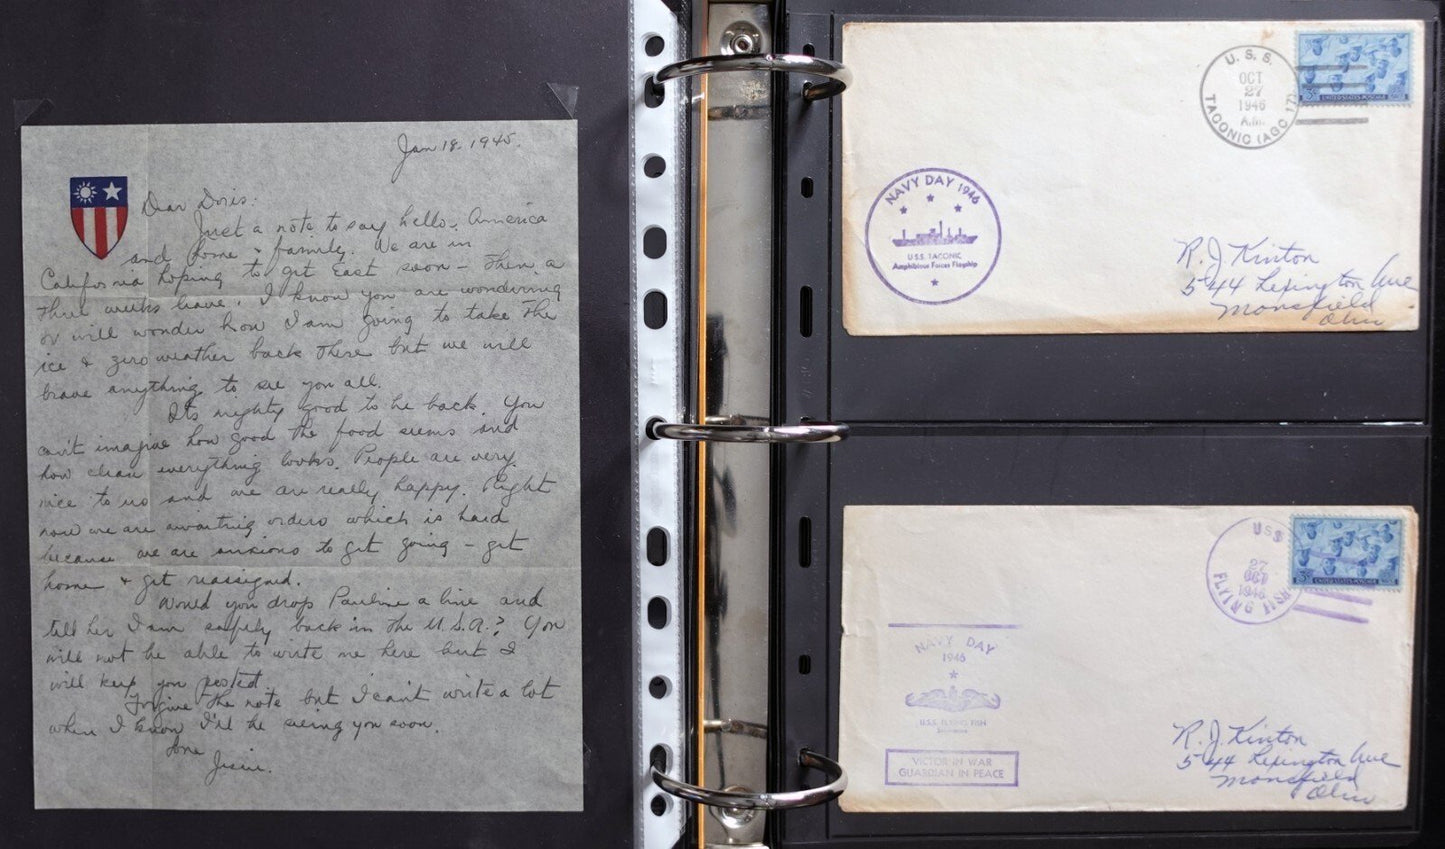 Jan 18. 1945.
Dear Doris:
Just a note to say hello, America
and home & family. We are in
California hoping to get East soon – Then a
three weeks leave. I know you are wondering
or will wonder how I am going to take the
ice & zero weather back there but we will
brave anything to see you all.
Its mighty good to be back. You
can't imagine how good the food seems and
how clean everything looks. People are very
nice to us and we are really happy. Right
now we are awaiting orders which is hard
because we are anxious to get going – get
home & get reassigned.
Would you drop Pauline a line and
tell her I am safely back in the U.S.A.? You
will not be able to write me here but I
will keep you posted.
Forgive the note but I can't write a lot
when I know I'll be seeing you soon.
Love
Jessie.
U. S. S.
OCT
27
1946
A.M.
TACONIC (AGC 17)
UNITED STATES POSTAGE
NAVY DAY 1946
U.S.S. TACONIC
Amphibious Forces Flagship
R. J. Kinton
544 Lexington Ave
Mansfield
Ohio
USS
27
OCT
1946
FLYING
UNITED STATES POSTAGE
NAVY DAY
1946
U.S.S. FLYING FISH
Submarine
VICTOR IN WAR
GUARDIAN IN PEACE
R. J. Kinton
544 Lexington Ave
Mansfield
Ohio